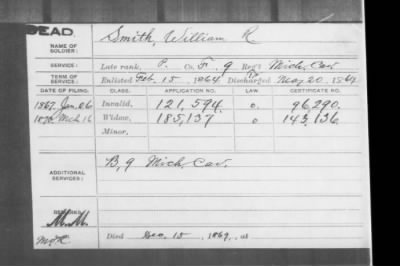 DEAD.
NAME OF SOLDIER: Smith, William R
SERVICE: Late rank, P. Co. F. 9 Reg't Mich. Cav.
TERM OF SERVICE: Enlisted Feb. 15, 1864 Discharged May 20, 186
DATE OF FILING. CLASS. APPLICATION NO. LAW CERTIFICATE NO.
1867. Jan. 06 Invalid, 121,594. o. 96290.
1870 Mch 16 Widow, 185,137 o. 143,136
Minor,
ADDITIONAL SERVICES: B, 9 Mich. Cav.
REMARKS:
M.M.
Died Dec. 15, 1869, at